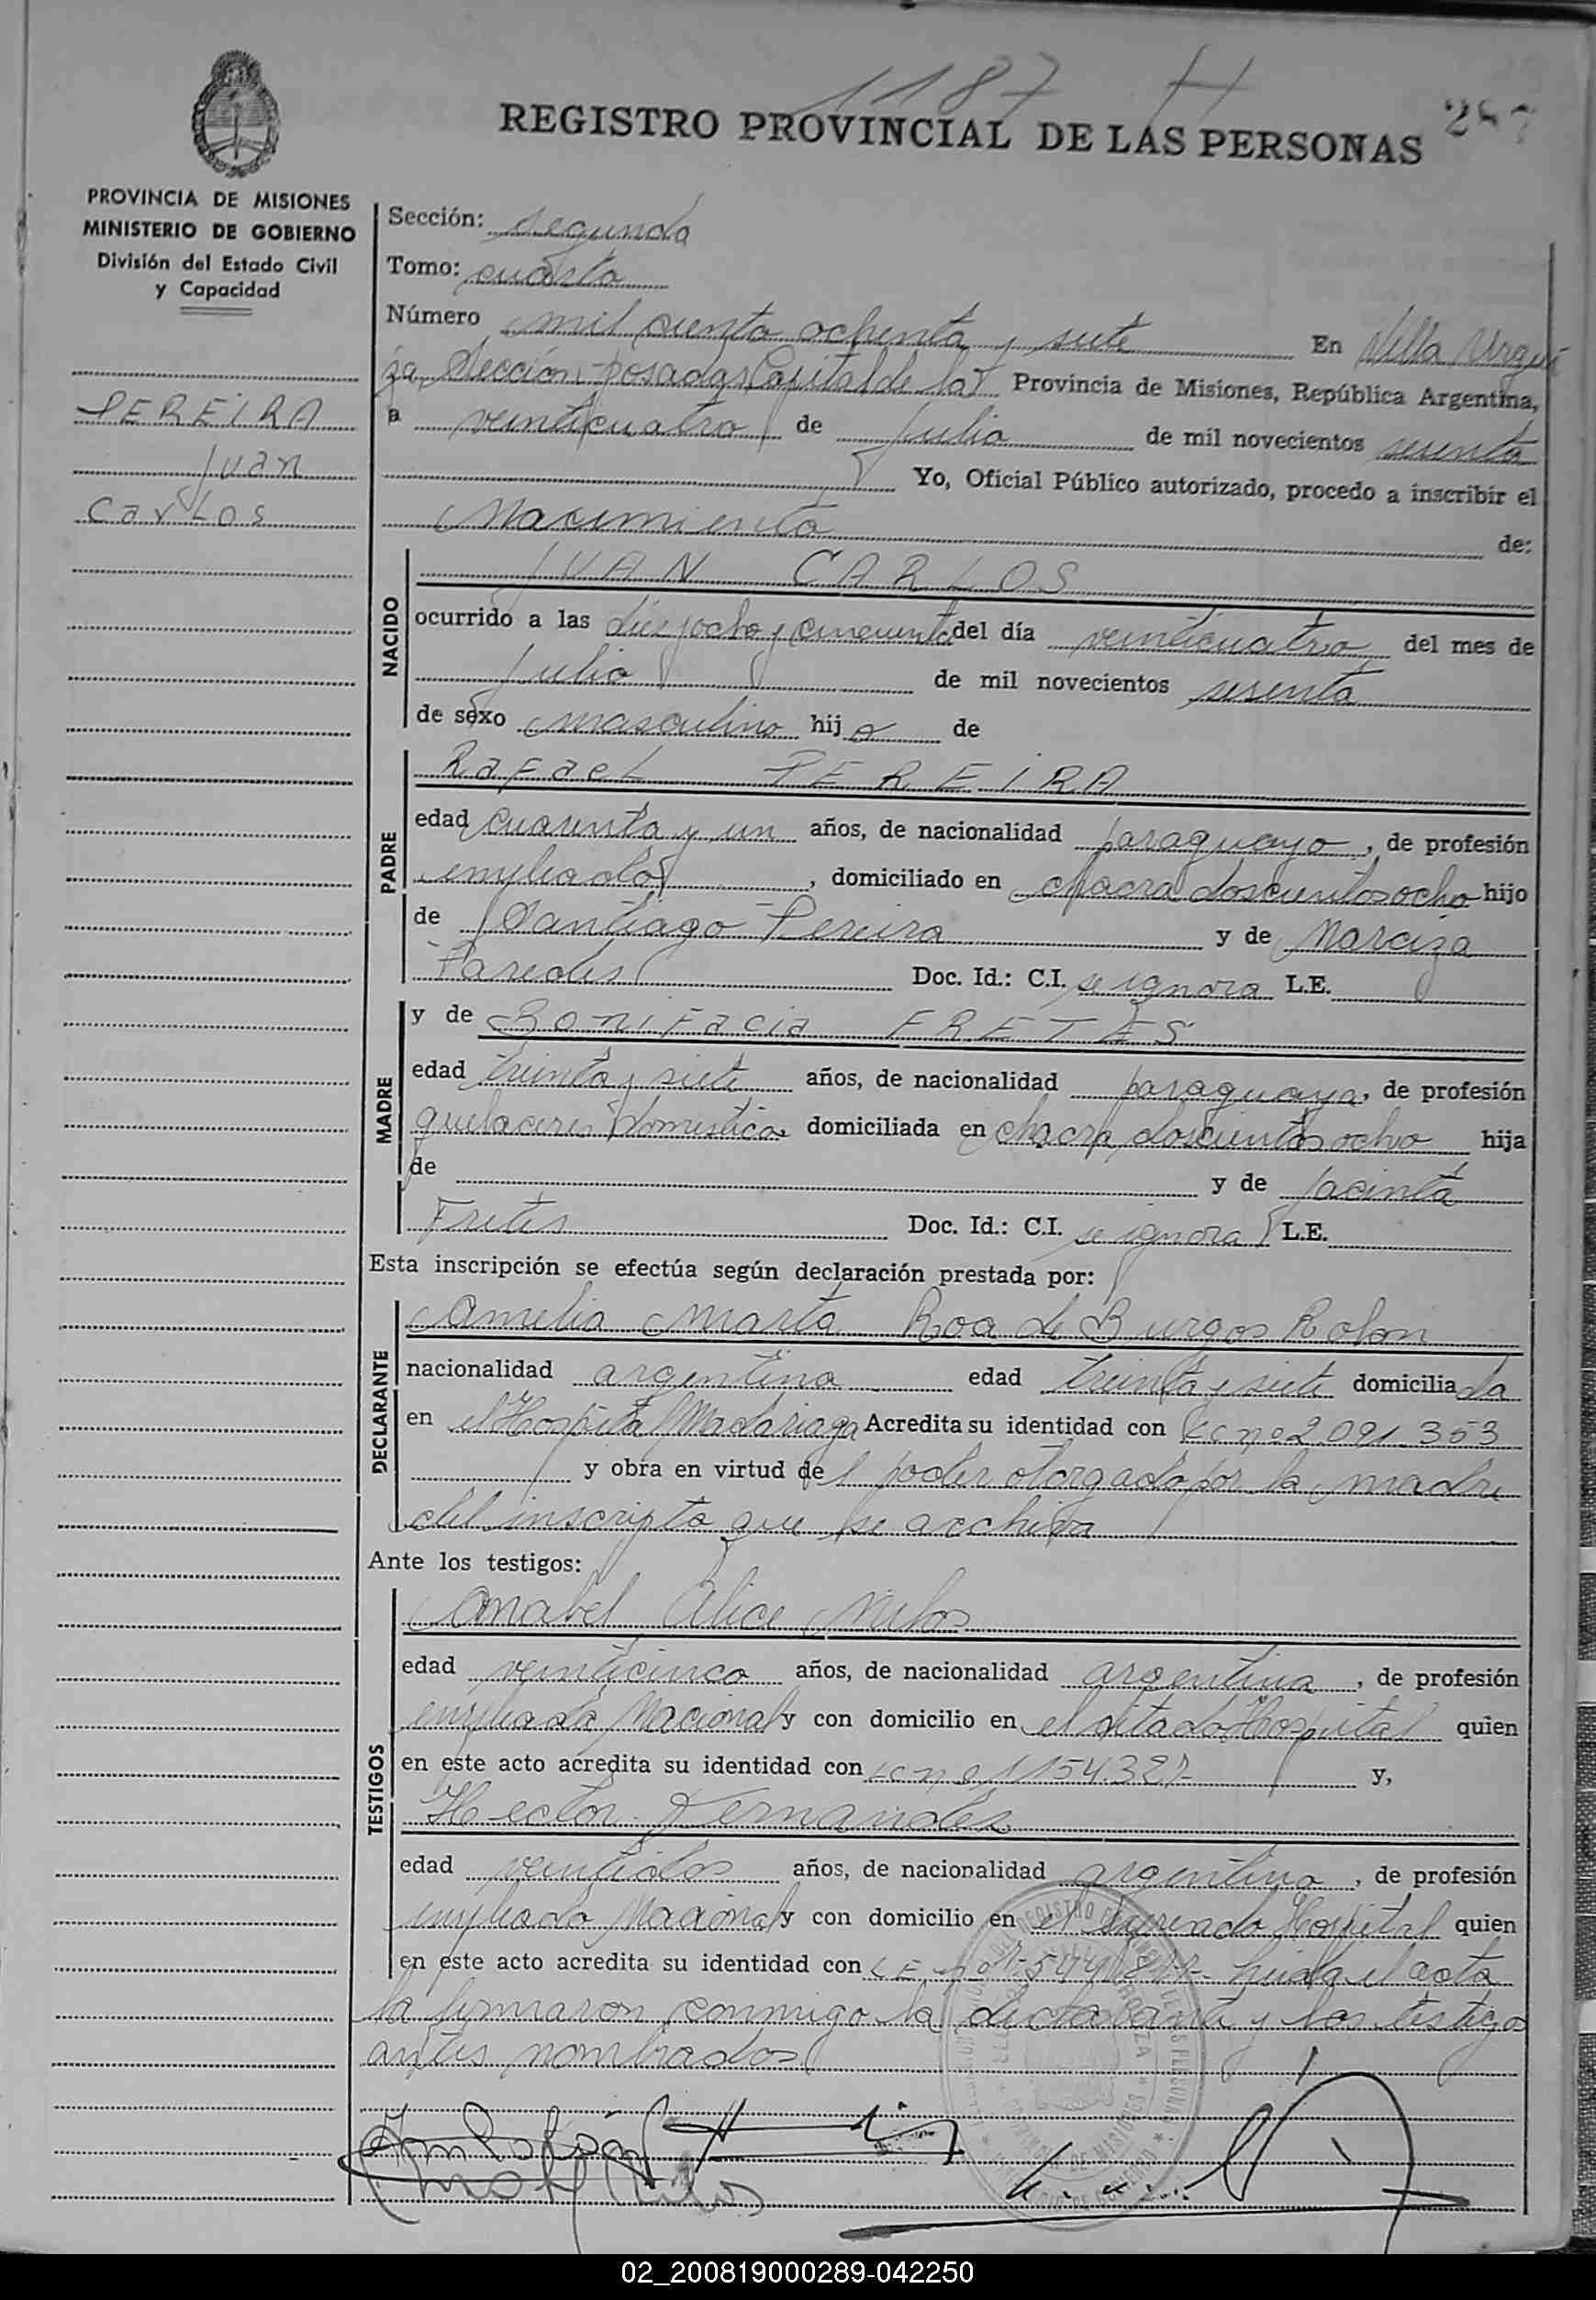 1187 H
REGISTRO PROVINCIAL DE LAS PERSONAS
PROVINCIA DE MISIONES
MINISTERIO DE GOBIERNO
División del Estado Civil
y Capacidad
PEREIRA
Juan
Carlos
Sección: segunda
Tomo: cuarto
Número mil ciento ochenta y siete En Villa Urqui
za Sección Posadas Capital de la Provincia de Misiones, República Argentina,
a veinticuatro de Julio de mil novecientos sesenta
Yo, Oficial Público autorizado, procedo a inscribir el
Nacimiento de:
NACIDO
JUAN CARLOS
ocurrido a las diez y ocho y cincuenta del día veinticuatro del mes de
Julio de mil novecientos sesenta
de sexo masculino hijo de
PADRE
Rafael PEREIRA
edad cuarenta y un años, de nacionalidad paraguayo, de profesión
empleado, domiciliado en chacra doscientos ocho hijo
de Santiago Pereira y de Narciza
Paredes Doc. Id.: C.I. se ignora L.E.
MADRE
y de Bonifacia FRETES
edad treinta y siete años, de nacionalidad paraguaya, de profesión
quehaceres domesticos domiciliada en chacra doscientos ocho hija
de y de Jacinta
Fretes Doc. Id.: C.I. se ignora L.E.
Esta inscripción se efectúa según declaración prestada por:
DECLARANTE
Amelia Marta Roa de Burgos Rolon
nacionalidad argentina edad treinta y siete domiciliada
en el Hospital Madariaga Acredita su identidad con L c nº 2.091.353
y obra en virtud del poder otorgado por la madre
del inscripto que se archiva
Ante los testigos:
TESTIGOS
Anabel Alice
edad veinticinco años, de nacionalidad argentina, de profesión
empleada Nacional y con domicilio en el citado Hospital quien
en este acto acredita su identidad con L c nº 1154.327 y,
Hector Fernandez
edad veintidos años, de nacionalidad argentino, de profesión
empleado Nacional y con domicilio en el Hospital quien
en este acto acredita su identidad con L E nº leida el acta
la firmaron conmigo la declarante y los testigos
antes nombrados
02_200819000289-042250